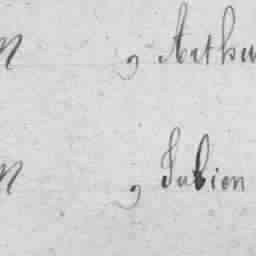 n , Arthu
n , Julien